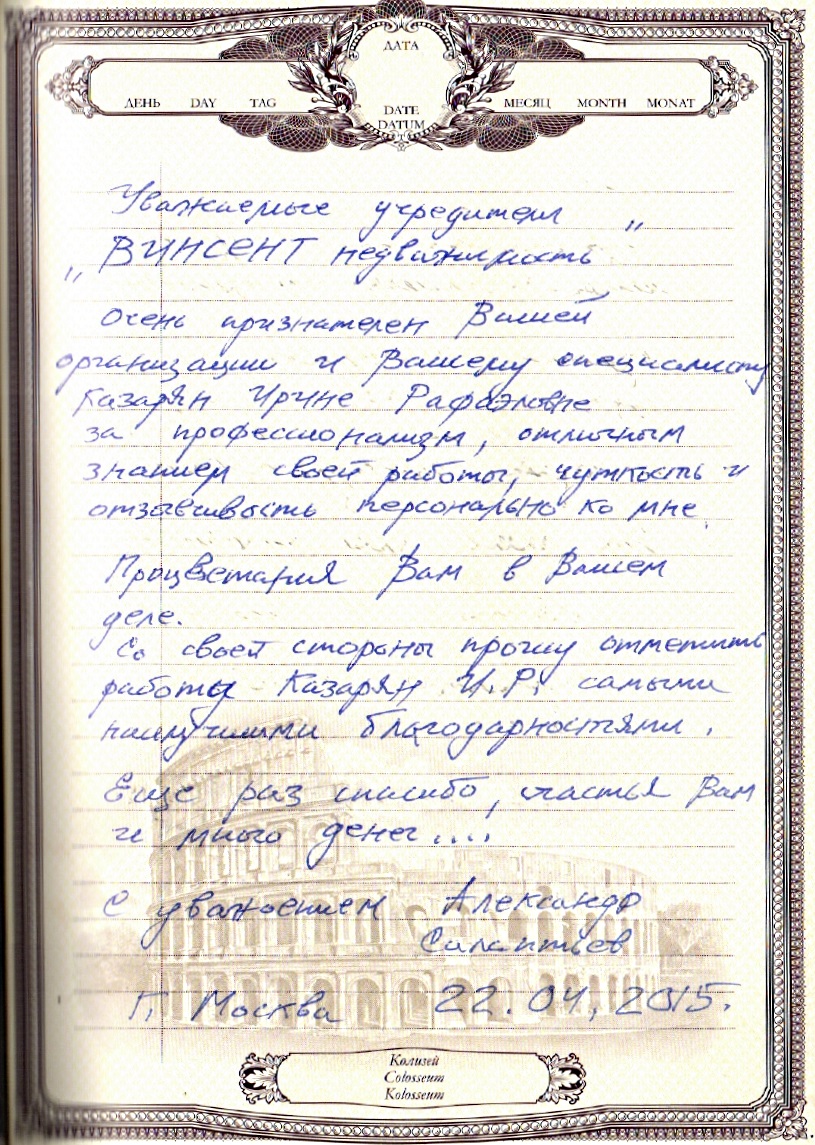 ДАТА
ДЕНЬ DAY TAG
DATE
DATUM
МЕСЯЦ MONTH MONAT
Уважаемые учредители
„ВИНСЕНТ недвижимость”
Очень признателен Вашей
организации и Вашему специалисту
Казарян Ирине Рафаэловне
за профессионализм, отличным
знанием своей работы, чуткость и
отзывчивость персонально ко мне.
Процветания Вам в Вашем
деле.
Со своей стороны прошу отметить
работу Казарян И.Р. самыми
наилучшими благодарностями.
Еще раз спасибо, счастья Вам
и много денег....
С уважением Александр
Силантьев
Г. Москва 22.04.2015.
Колизей
Colosseum
Kolosseum